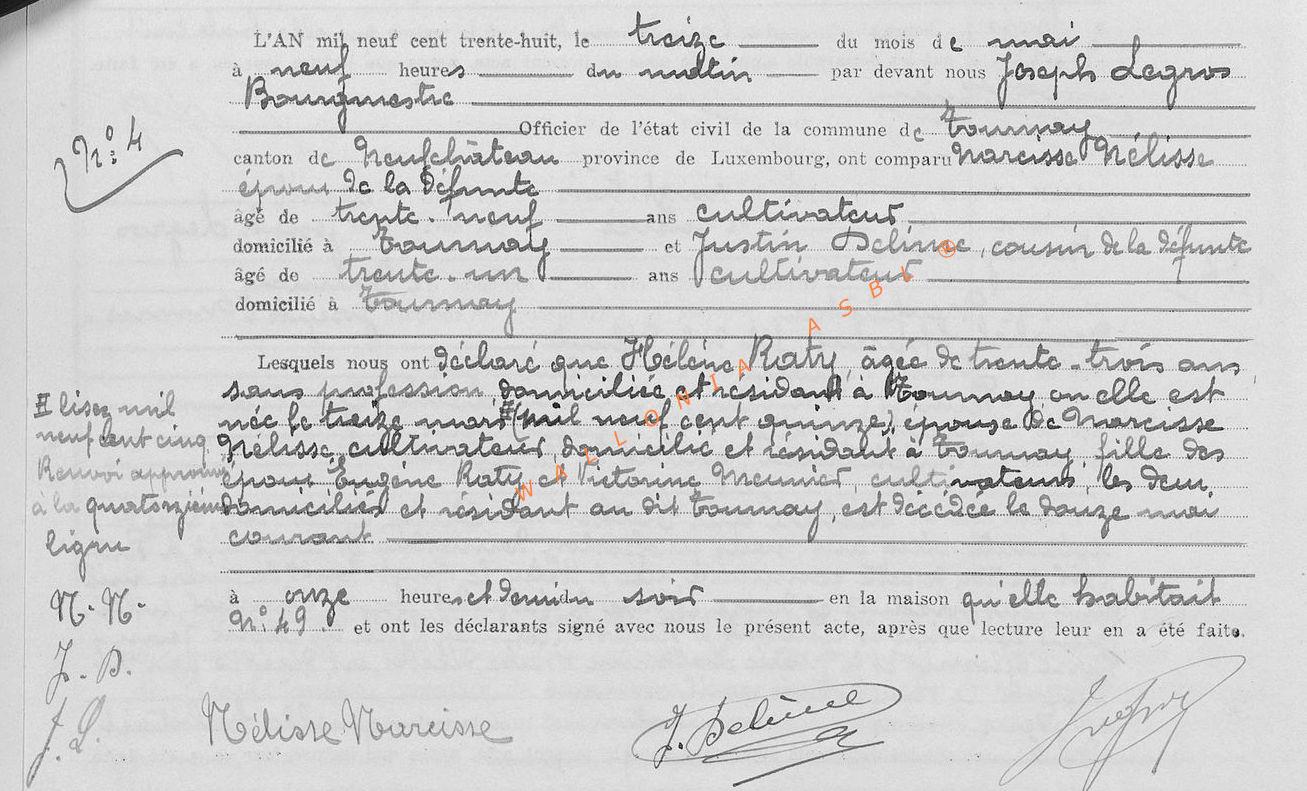 L'AN mil neuf cent trente-huit, le treize du mois de mai
à neuf heures du matin par devant nous Joseph Legros
Bourgmestre
Officier de l'état civil de la commune de Tournay
N° 4
canton de Neufchâteau province de Luxembourg, ont comparu Narcisse Nélisse
époux de la défunte
âgé de trente-neuf ans cultivateur
domicilié à Tournay et Justin Delinne, cousin de la défunte
âgé de trente-un ans cultivateur
domicilié à Tournay
WALLONIA ASBL ®
Lesquels nous ont déclaré que Hélène Raty, âgée de trente-trois ans
sans profession, domiciliée et résidant à Tournay où elle est
née le treize mars (mil neuf cent quinze), épouse de Narcisse
Nélisse, cultivateur, domicilié et résidant à Tournay, fille des
époux Eugène Raty et Victorine Meunier, cultivateurs, les deux
domiciliés et résidant au dit Tournay, est décédée le douze mai
courant
lisez mil
neuf cent cinq
Renvoi approuvé
à la quatorzième
ligne
N. N.
J. D.
J. L
à onze heures et demi du soir en la maison qu'elle habitait
N° 49. et ont les déclarants signé avec nous le présent acte, après que lecture leur en a été faite.
Nélisse Narcisse
J. Delinne